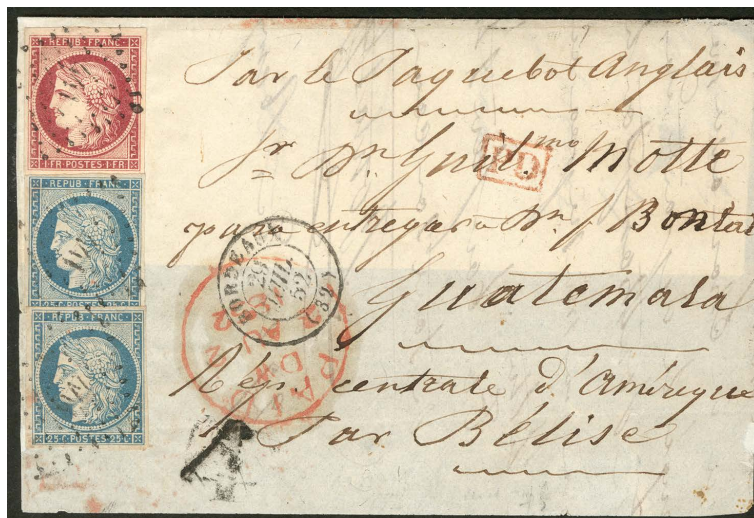 REPUB·FRANC
1FR·POSTES·1FR
REPUB·FRANC
REPUB·FRANC
25·C·POSTES·25·C
Par le Paquebot Anglais
Sr. Dn. Guil.mo Motte
PD
para entregar a Dn. J. Bontal
BORDEAUX
29
JUIL.
52
(32)
PAID
2 AU 2
Guatemala
Rép. centrale d'Amérique
Par Bélise